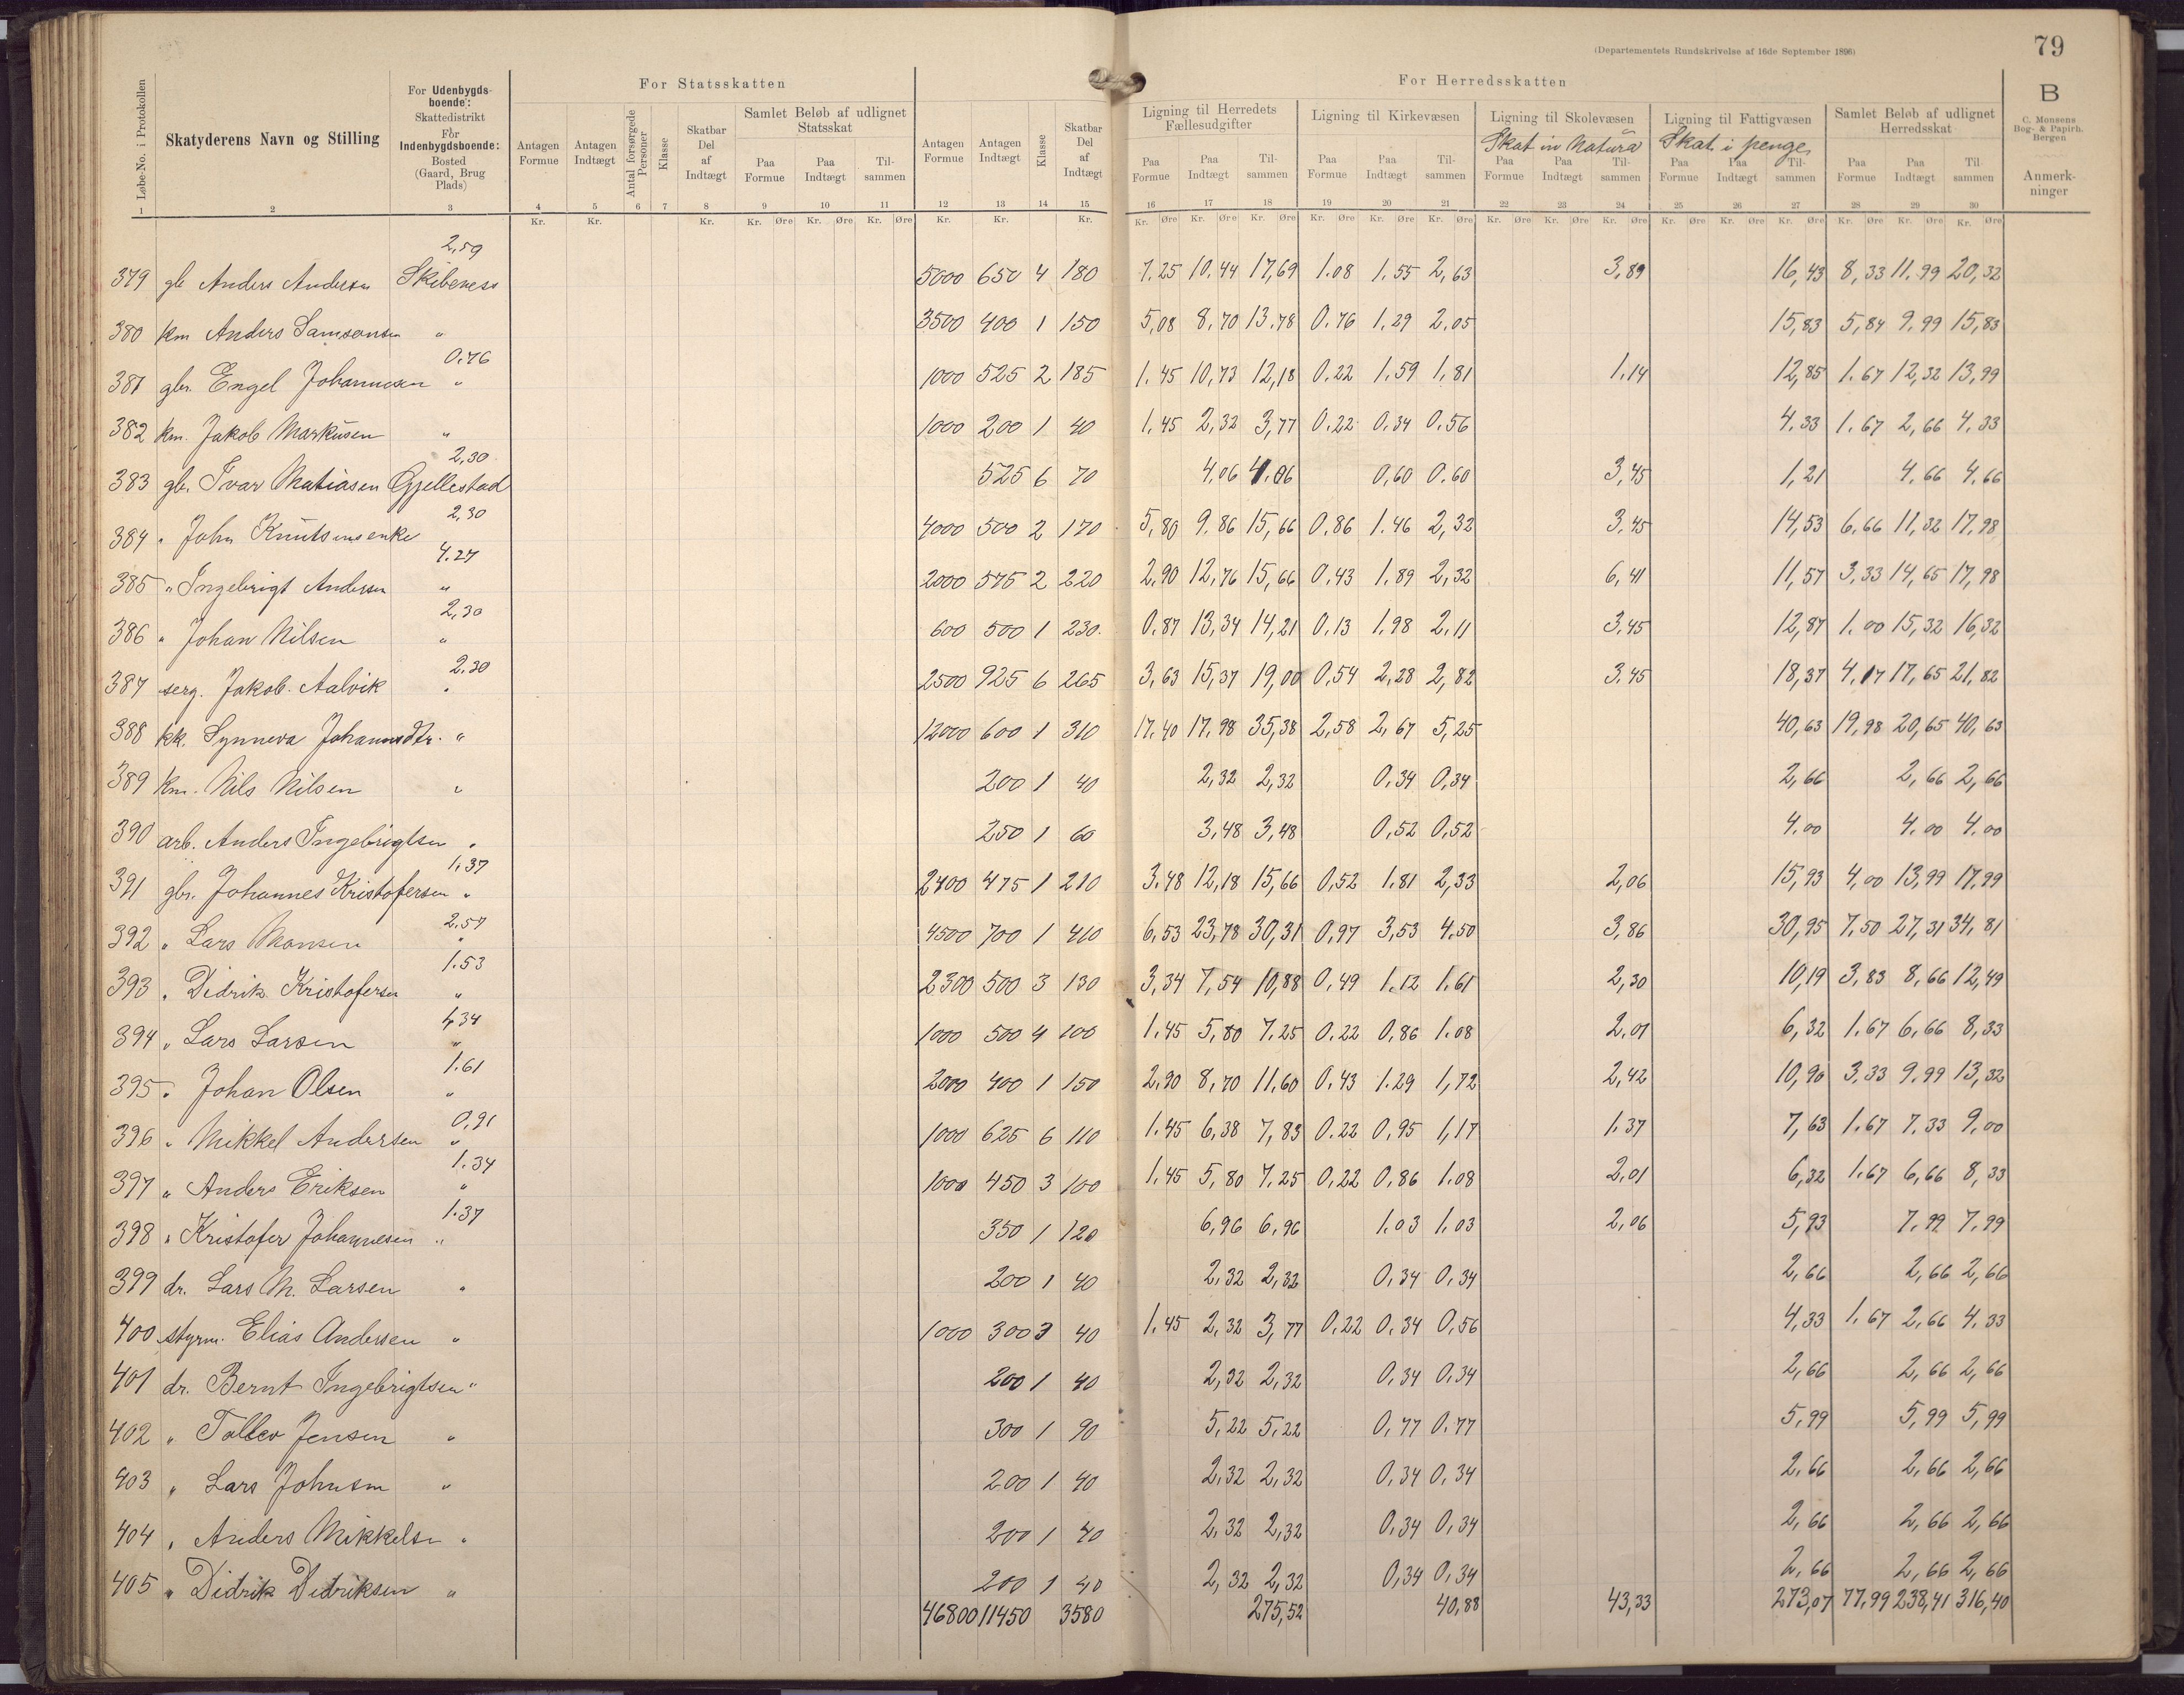 (Departementets Rundskrivelse af 16de September 1896)
79
For Statsskatten
For Herredsskatten
B
C. Monsens Bog- & Papirh. Bergen
Løbe-No. i Protokollen | Skatyderens Navn og Stilling | For Udenbygdsboende: Skattedistrikt For Indenbygdsboende: Bosted (Gaard, Brug Plads) | Antagen Formue | Antagen Indtægt | Antal forsørgede Personer | Klasse | Skatbar Del af Indtægt | Samlet Beløb af udlignet Statsskat | Paa Formue | Paa Indtægt | Tilsammen | Antagen Formue | Antagen Indtægt | Klasse | Skatbar Del af Indtægt
Ligning til Herredets Fællesudgifter | Ligning til Kirkevæsen | Ligning til Skolevæsen | Ligning til Fattigvæsen | Samlet Beløb af udlignet Herredsskat
Skat in Natura | Skat i penge
Paa Formue | Paa Indtægt | Tilsammen | Paa Formue | Paa Indtægt | Tilsammen | Paa Formue | Paa Indtægt | Tilsammen | Paa Formue | Paa Indtægt | Tilsammen | Paa Formue | Paa Indtægt | Tilsammen | Anmerkninger
1 2 3 4 5 6 7 8 9 10 11 12 13 14 15 16 17 18 19 20 21 22 23 24 25 26 27 28 29 30
Kr. Kr. Kr. Kr. Øre Kr. Øre Kr. Øre Kr. Kr. Kr. Kr. Øre Kr. Øre Kr. Øre Kr. Øre Kr. Øre Kr. Øre Kr. Øre Kr. Øre Kr. Øre Kr. Øre Kr. Øre Kr. Øre Kr. Øre Kr. Øre Kr. Øre
2,59
379 gb Anders Andersen Skibeness 5000 650 4 180 7.25 10.44 17,69 1.08 1.55 2,63 3,89 16,43 8,33 11.99 20,32
380 km Anders Samsonsen " 3500 400 1 150 5,08 8,70 13.78 0.76 1.29 2.05 15,83 5,84 9.99 15,83
0.76
381 gbr. Engel Johannesen " 1000 525 2 185 1.45 10,73 12,18 0.22 1.59 1,81 1.14 12,85 1.67 12,32 13,99
382 km. Jakob Markusen " 1000 200 1 40 1.45 2,32 3,77 0.22 0.34 0.56 4.33 1.67 2,66 4.33
2,30
383 gbr. Ivar Matiasen Gjellestad 525 6 70 4,06 4.06 0,60 0.60 3,45 1,21 4.66 4.66
2,30
384 " John Knutsens enke 4000 500 2 170 5,80 9.86 15,66 0,86 1.46 2,32 3.45 14,53 6,66 11,32 17,98
4.27
385 " Ingebrigt Andersen " 2000 575 2 220 2.90 12,76 15,66 0,43 1,89 2,32 6,41 11,57 3,33 14,65 17,98
2,30
386 " Johan Nilsen " 600 500 1 230. 0.87 13,34 14,21 0,13 1.98 2.11 3,45 12,87 1.00 15,32 16,32
2,30
387 serg. Jakob Aalvik " 2500 925 6 265 3,63 15,37 19,00 0,54 2,28 2,82 3.45 18,37 4.17 17,65 21,82
388 kk. Synneva Johannesdtr. " 12000 600 1 310 17.40 17,98 35,38 2,58 2,67 5,25 40,63 19,98 20,65 40,63
389 km. Nils Nilsen " 200 1 40 2,32 2,32 0,34 0,34 2,66 2,66 2,66
390 arb. Anders Ingebrigtsen " 250 1 60 3,48 3,48 0,52 0,52 4.00 4.00 4.00
1,37
391 gbr. Johannes Kristofersen " 2400 475 1 210 3.48 12,18 15,66 0,52 1.81 2,33 2,06 15,93 4,00 13,99 17.99
2.57
392 " Lars Monsen " 4500 700 1 410 6,53 23,78 30,31 0,97 3,53 4.50 3,86 30,95 7,50 27,31 34,81
1.53
393 " Didrik Kristofersen " 2300 500 3 130 3,34 7,54 10,88 0,49 1.12 1.61 2,30 10,19 3,83 8,66 12,49
1,34
394 " Lars Larsen " 1000 500 4 100 1.45 5,80 7.25 0.22 0,86 1.08 2.01 6,32 1.67 6,66 8,33
1.61
395 " Johan Olsen " 2000 400 1 150 2,90 8,70 11,60 0,43 1.29 1,72 2,42 10,90 3,33 9.99 13,32
0,91
396 " Mikkel Andersen " 1000 625 6 110 1.45 6,38 7,83 0.22 0,95 1,17 1.37 7,63 1.67 7.33 9.00
1.34
397 " Anders Eriksen " 1000 450 3 100 1.45 5,80 7.25 0,22 0,86 1.08 2,01 6,32 1.67 6,66 8,33
1.37
398 " Kristofer Johannesen " 350 1 120 6,96 6,96 1.03 1.03 2,06 5,93 7.99 7.99
399 dr. Lars M. Larsen " 200 1 40 2,32 2,32 0,34 0,34 2,66 2,66 2,66
400 styrm. Elias Andersen " 1000 300 3 40 1,45 2,32 3,77 0,22 0,34 0,56 4,33 1.67 2,66 4,33
401 dr. Bernt Ingebrigtsen " 200 1 40 2,32 2,32 0,34 0,34 2,66 2,66 2,66
402 " Tollev Jensen " 300 1 90 5,22 5,22 0,77 0.77 5,99 5,99 5,99
403 " Lars Johnsen " 200 1 40 2,32 2,32 0,34 0,34 2,66 2,66 2,66
404 " Anders Mikkelsen " 200 1 40 2,32 2,32 0,34 0,34 2,66 2,66 2,66
405 " Didrik Didriksen " 200 1 40 2,32 2,32 0,34 0,34 2,66 2,66 2,66
46800 11450 3580 275,52 40,88 43,33 273,07 77,99 238,41 316,40